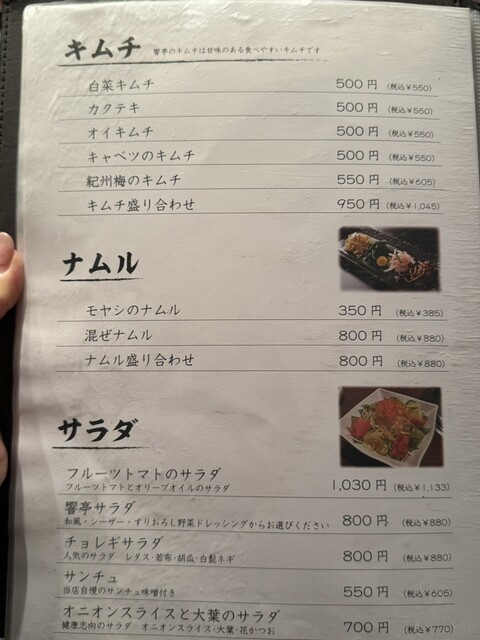 キムチ 響亭のキムチは甘味のある食べやすいキムチです
白菜キムチ 500円 (税込¥550)
カクテキ 500円 (税込¥550)
オイキムチ 500円 (税込¥550)
キャベツのキムチ 500円 (税込¥550)
紀州梅のキムチ 550円 (税込¥605)
キムチ盛り合わせ 950円 (税込¥1,045)
ナムル
モヤシのナムル 350円 (税込¥385)
混ぜナムル 800円 (税込¥880)
ナムル盛り合わせ 800円 (税込¥880)
サラダ
フルーツトマトのサラダ 1,030円 (税込¥1,133)
フルーツトマトとオリーブオイルのサラダ
響亭サラダ 800円 (税込¥880)
和風・シーザー・すりおろし野菜ドレッシングからお選びください
チョレギサラダ 800円 (税込¥880)
人気のサラダ レタス・若布・胡瓜・白髭ネギ
サンチュ 550円 (税込¥605)
当店自慢のサンチュ味噌付き
オニオンスライスと大葉のサラダ 700円 (税込¥770)
健康志向のサラダ オニオンスライス・大葉・花かつお